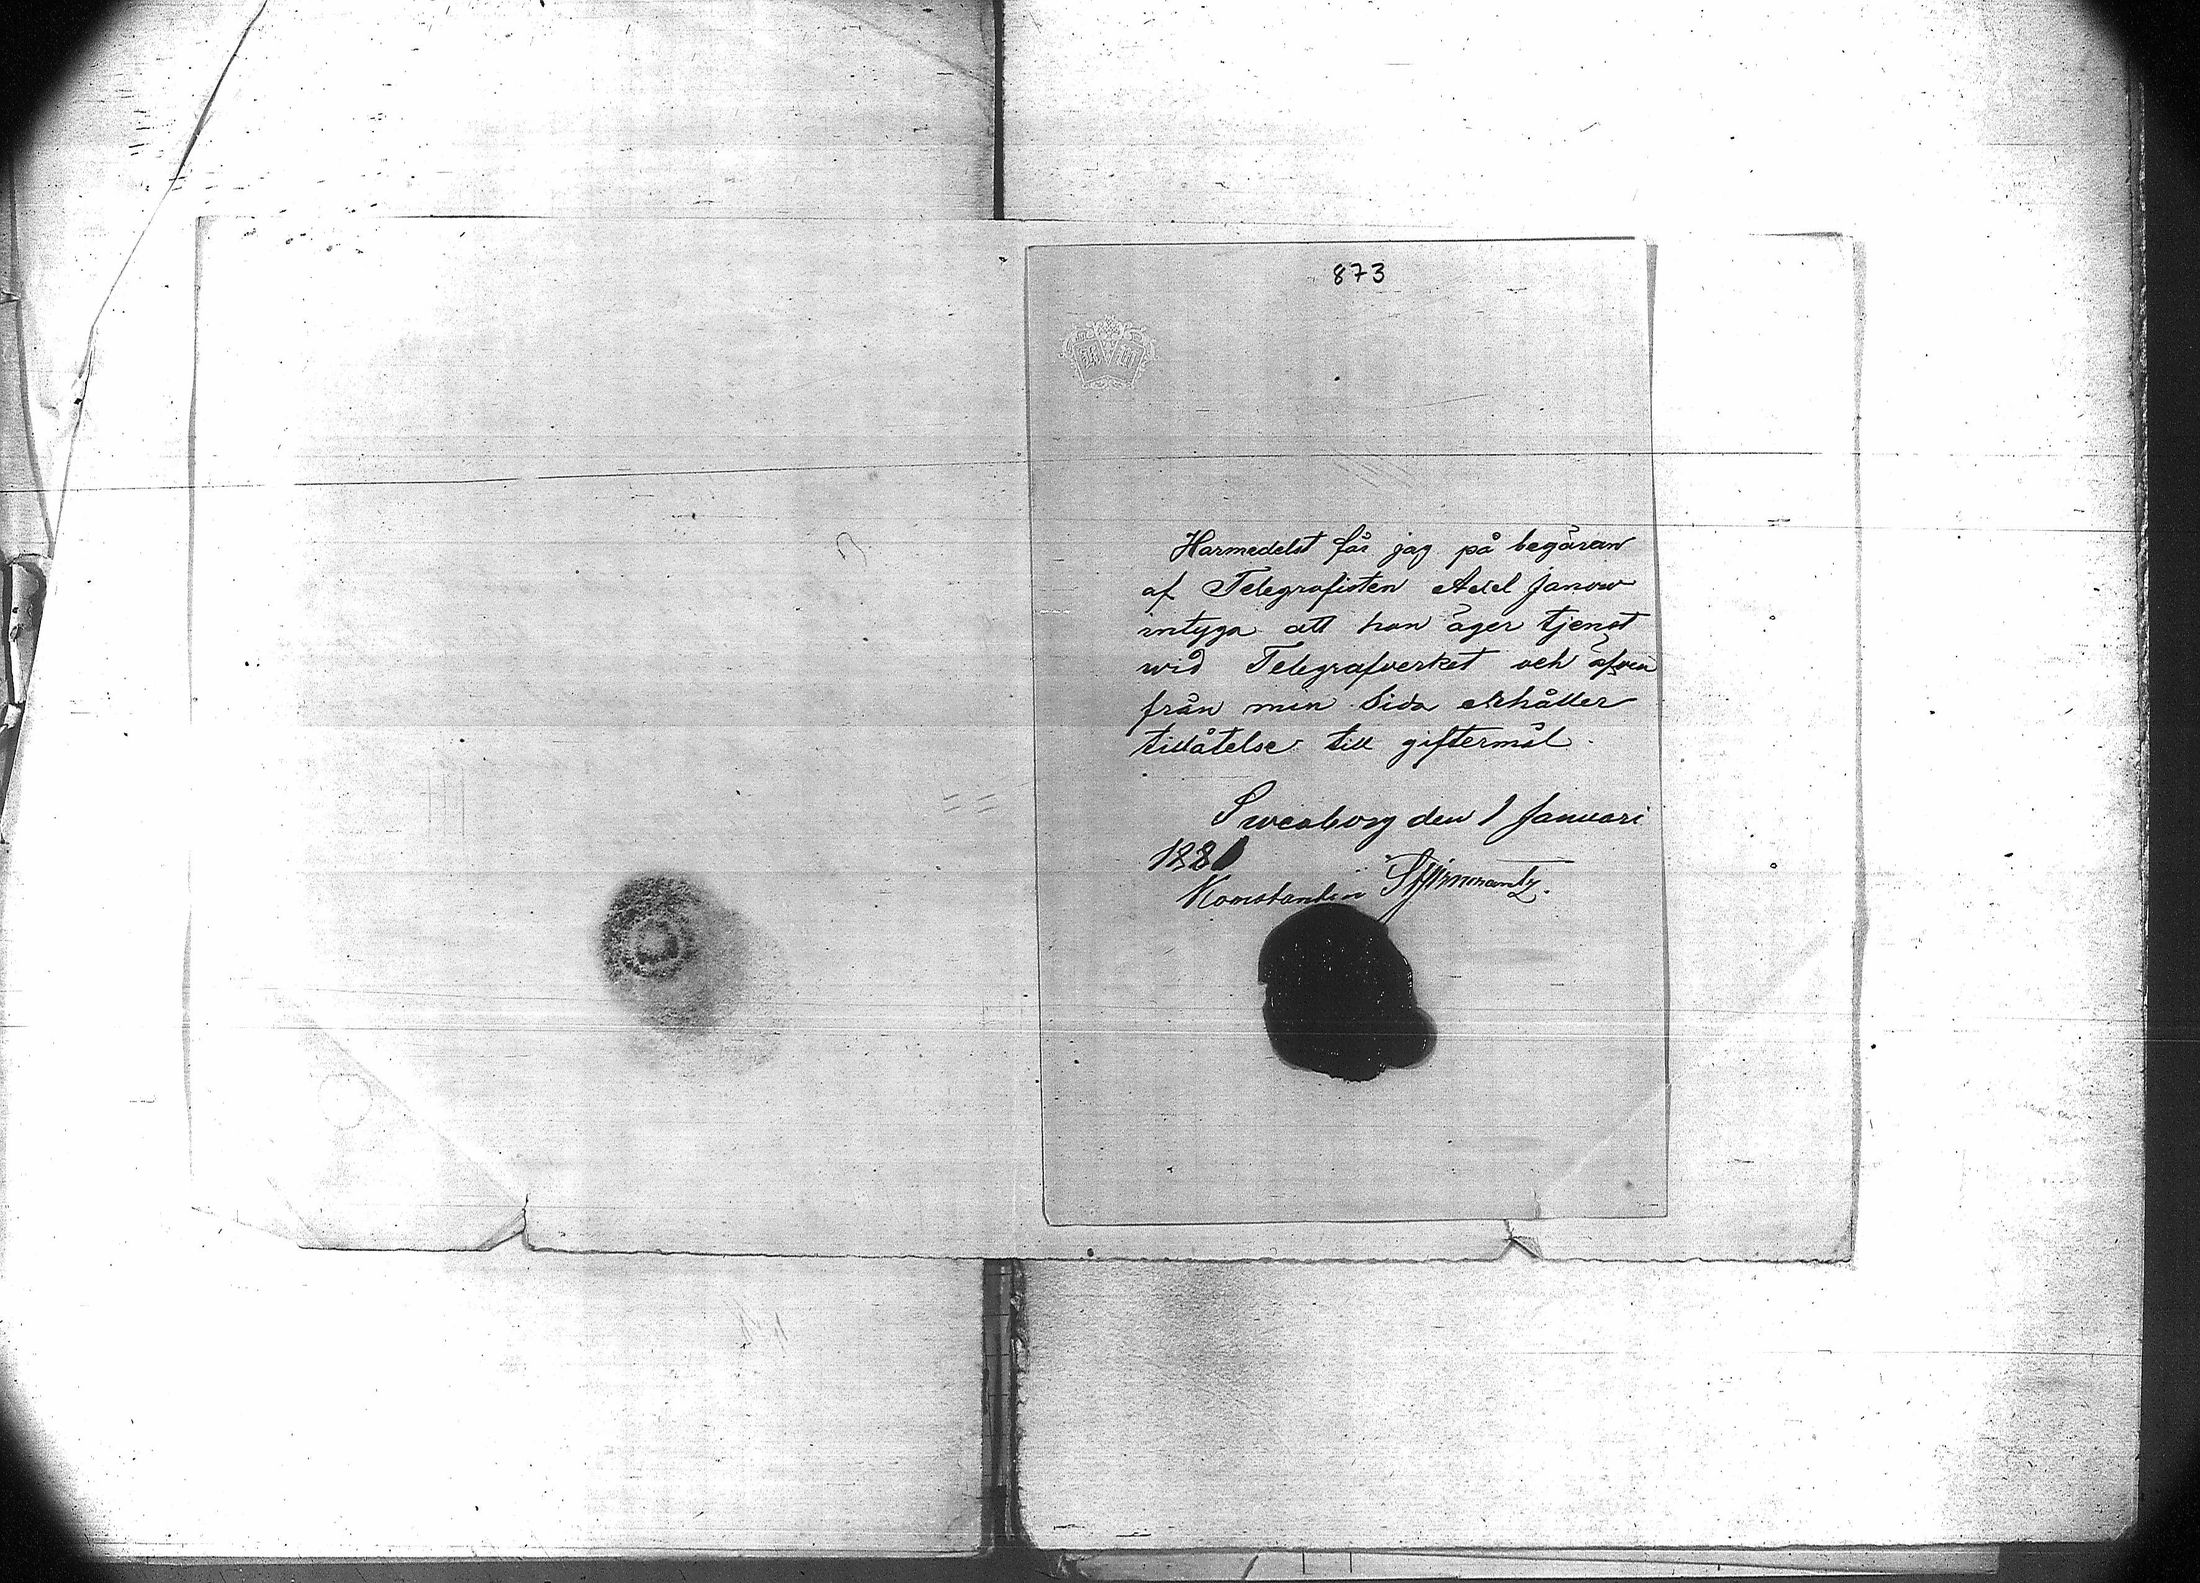 873
Härmedelst får jag på begäran
af Telegrafisten Axel Janow
intyga att han äger tjenst
wid Telegrafverket och äfven
från min Sida erhåller
tillåtelse till giftermål.
Sweaborg den 1 Januari
188
Konstantin